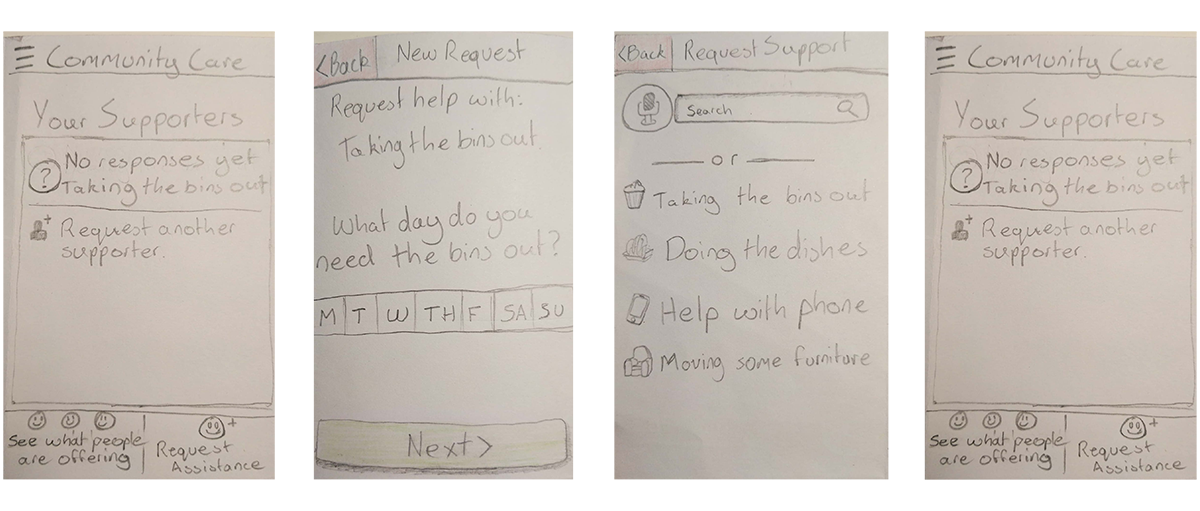 Community Care
Your Supporters
?
No responses yet
Taking the bins out
+
Request another
supporter.
See what people
are offering
+
Request
Assistance
<Back
New Request
Request help with:
Taking the bins out
What day do you
need the bins out?
M T W TH F SA SU
Next >
<Back
Request Support
Search
or
Taking the bins out
Doing the dishes
Help with phone
Moving some furniture
Community Care
Your Supporters
?
No responses yet
Taking the bins out
+
Request another
supporter.
See what people
are offering
+
Request
Assistance